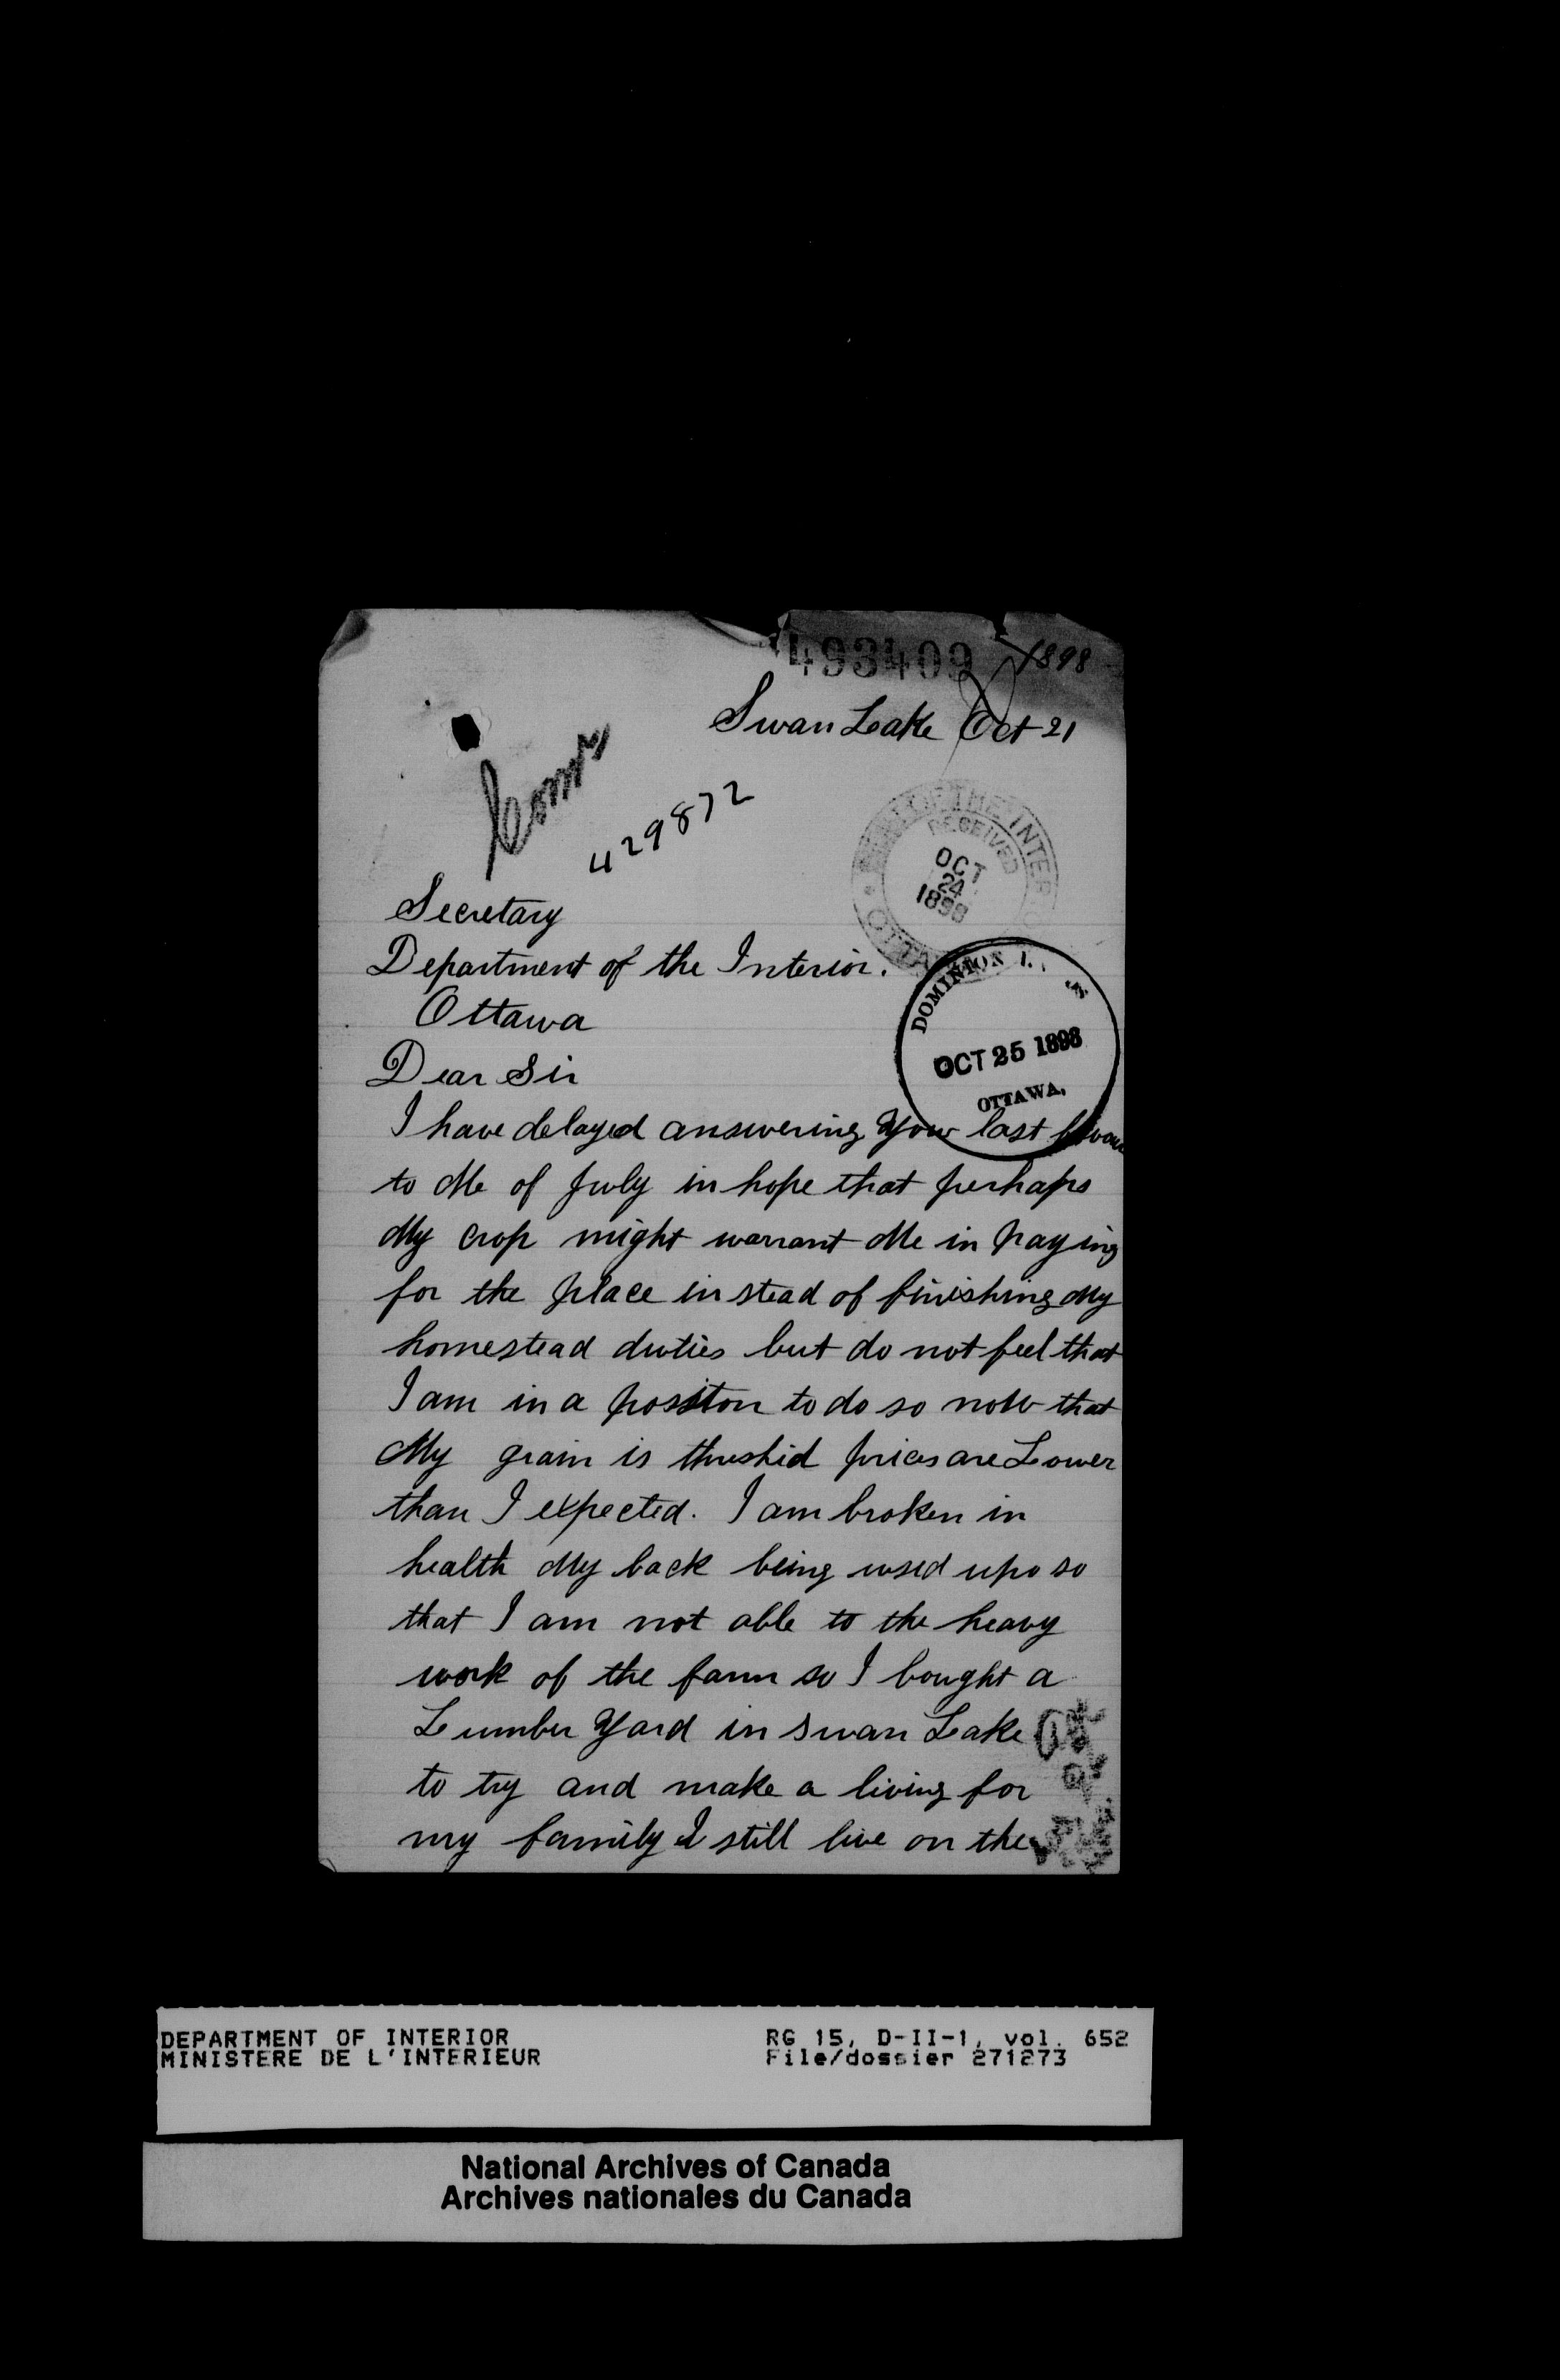 493409 1898
Swan Lake Oct 21
429872
DEPT OF THE INTERIOR
RECEIVED
OCT
24
1898
OTTAWA
Secretary
Department of the Interior.
Ottawa
Dear Sir
DOMINION
OCT 25 1898
OTTAWA.
I have delayed answering Your last favour
to Me of July in hope that perhaps
My crop might warrant Me in paying
for the place instead of finishing My
homestead duties but do not feel that
I am in a position to do so now that
My grain is threshid prices are Lower
than I expected. I am broken in
health My back being used up so
that I am not able to the heavy
work of the farm so I bought a
Lumber Yard in Swan Lake
to try and make a living for
my family I still live on the
DEPARTMENT OF INTERIOR RG 15, D-II-1, vol. 652
MINISTERE DE L'INTERIEUR File/dossier 271273
National Archives of Canada
Archives nationales du Canada